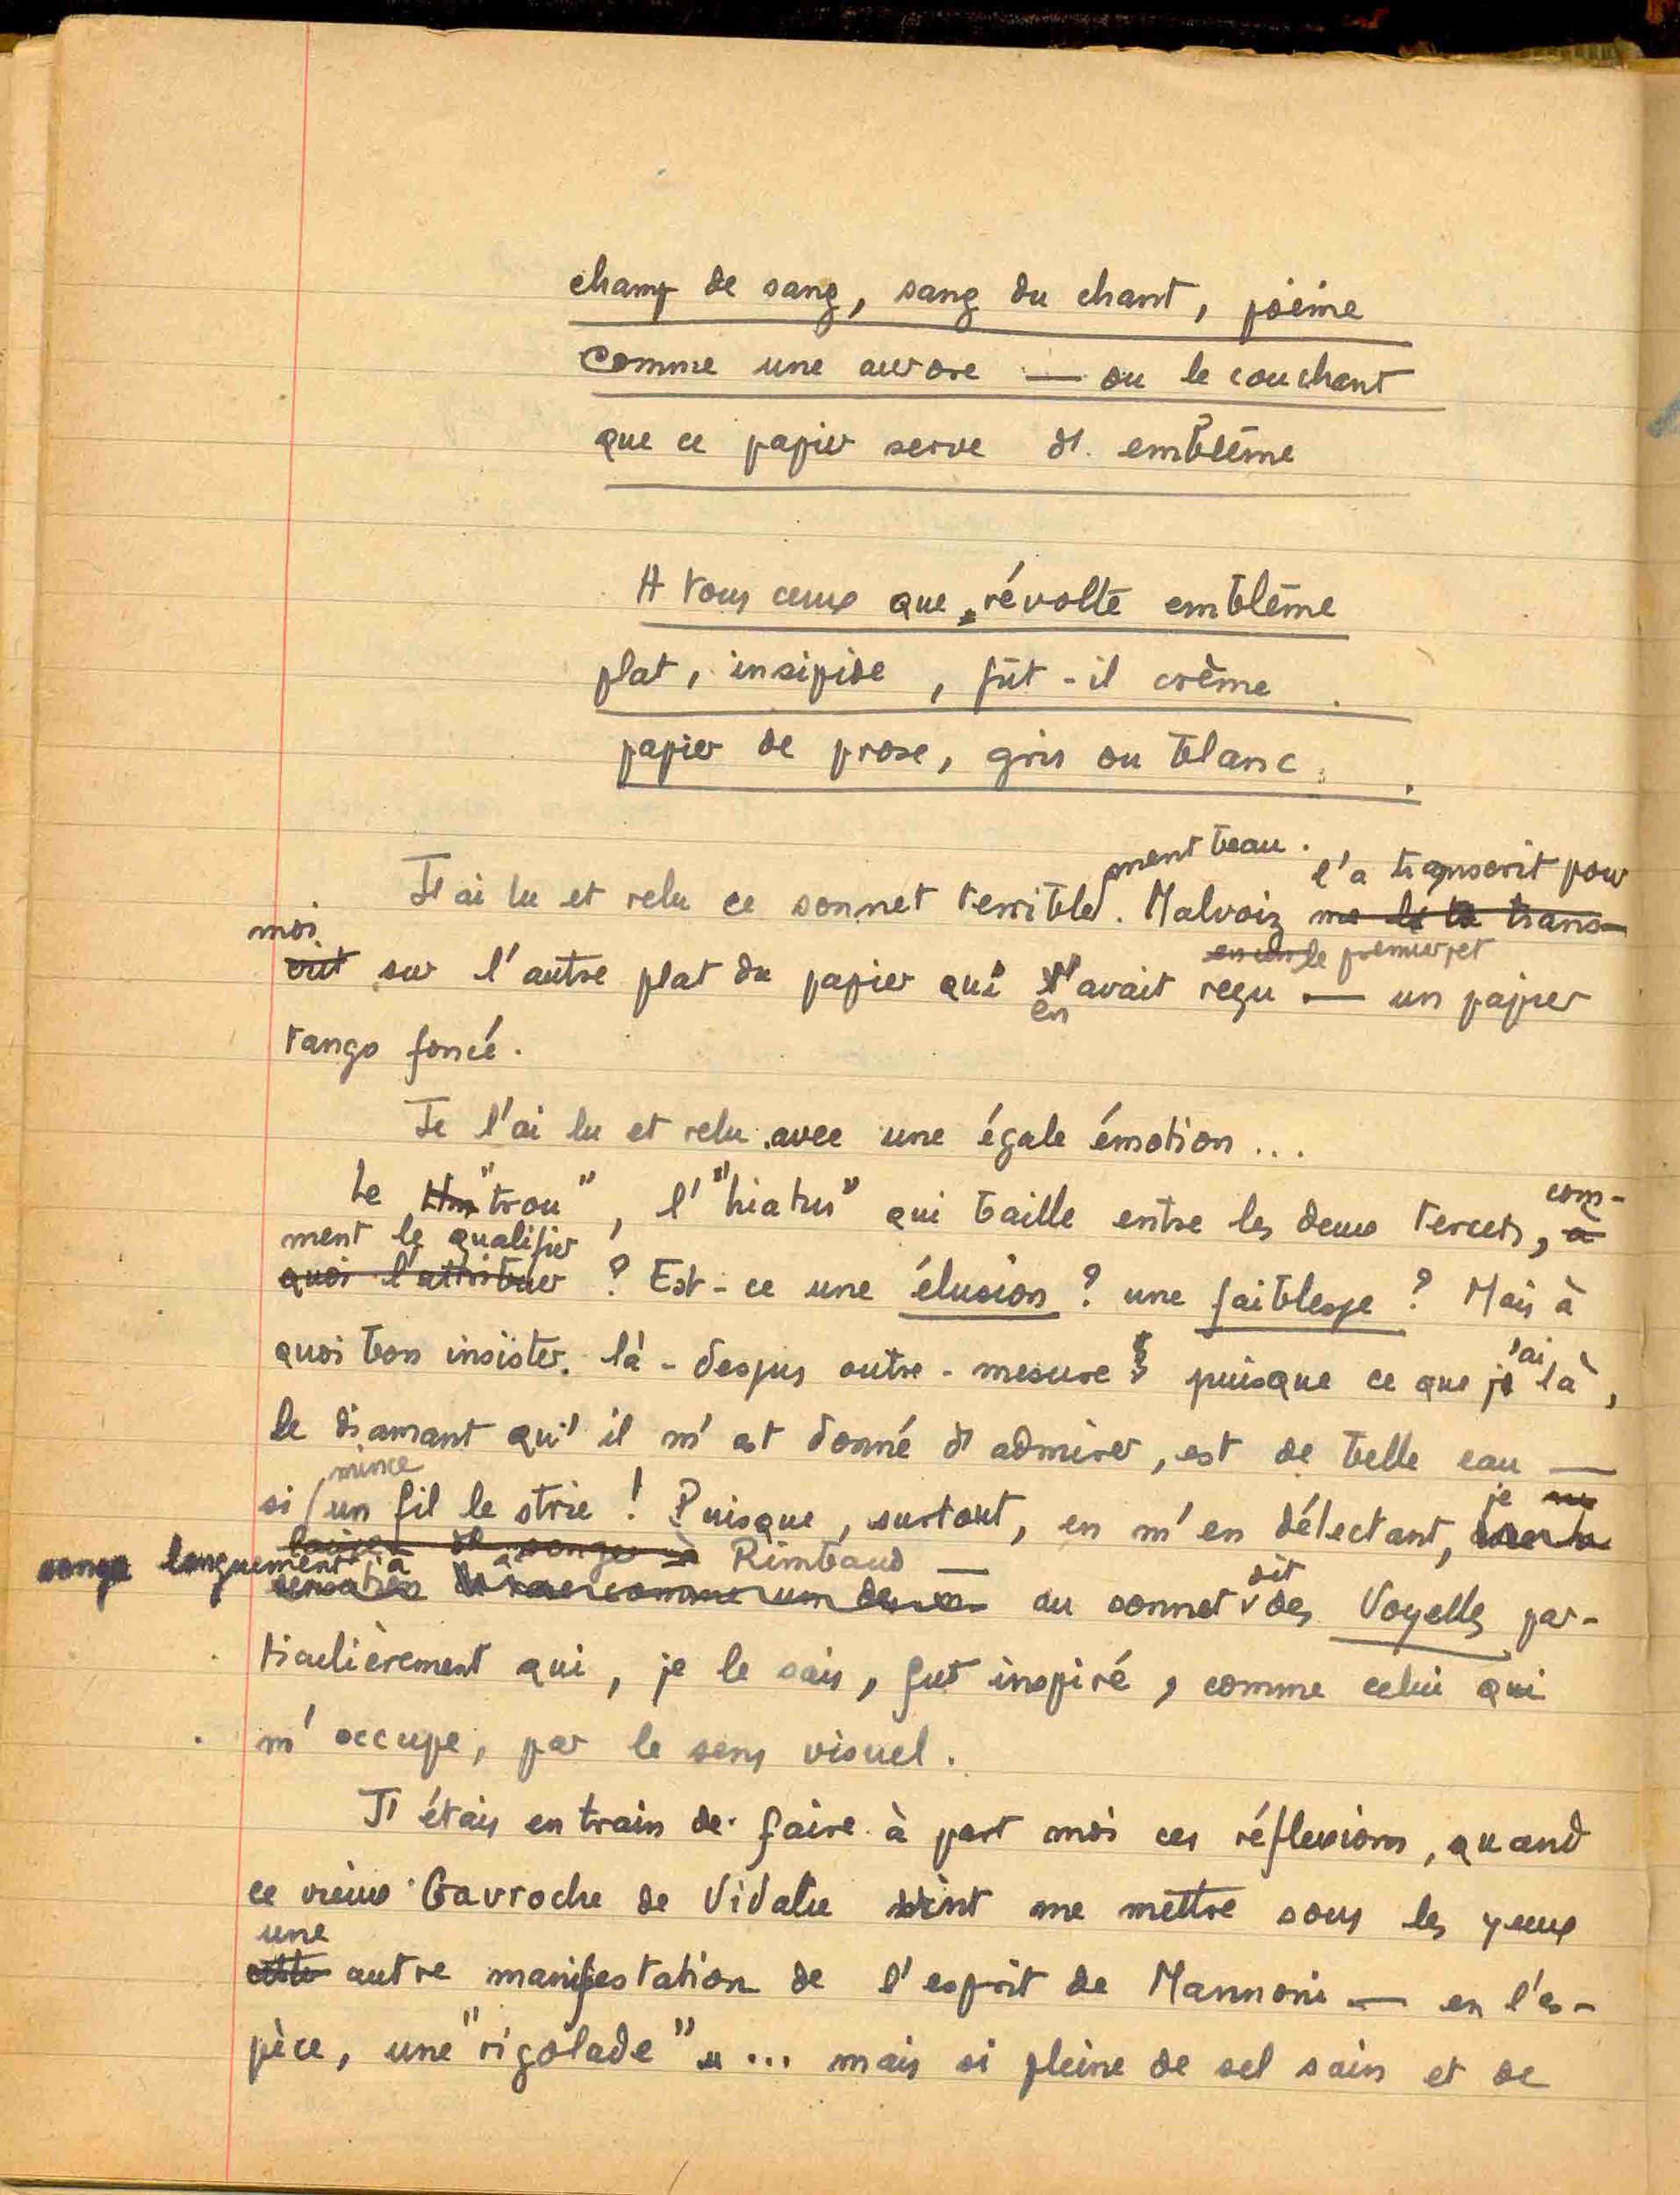 champ de sang, sang du chant, poème
comme une aurore — ou le couchant
que ce papier serve d'emblême
A tous ceux que révolte emblême
plat, insipide, fût-il crème
papier de prose, gris ou blanc.
ment beau. l'a transcrit pour
J'ai lu et relu ce sonnet terrible. Malvoiz me le trans-
moi
crit sur l'autre plat du papier qui l'avait reçu — un papier
en le premier jet
tango foncé.
Je l'ai lu et relu avec une égale émotion...
Le "trou", l'"hiatus" qui baille entre les deux tercets, à
com-
ment le qualifier
quoi l'attribuer ? Est-ce une élusion ? une faiblesse ? Mais à
quoi bon insister là-dessus outre-mesure puisque ce que j'ai là,
le diamant qu'il m'est donné d'admirer, est de belle eau —
mince
si un fil le strie ! Puisque, surtout, en m'en délectant, je
songe longuement à Rimbaud —
dit
au sonnet des Voyelles par-
ticulièrement qui, je le sais, fut inspiré, comme celui qui
m'occupe, par le sens visuel.
J'étais en train de faire à part moi ces réflexions, quand
ce vieux Gavroche de Vidalie vint me mettre sous les yeux
une
cette autre manifestation de l'esprit de Mannoni — en l'es-
pèce, une "rigolade"... mais si pleine de sel sain et de